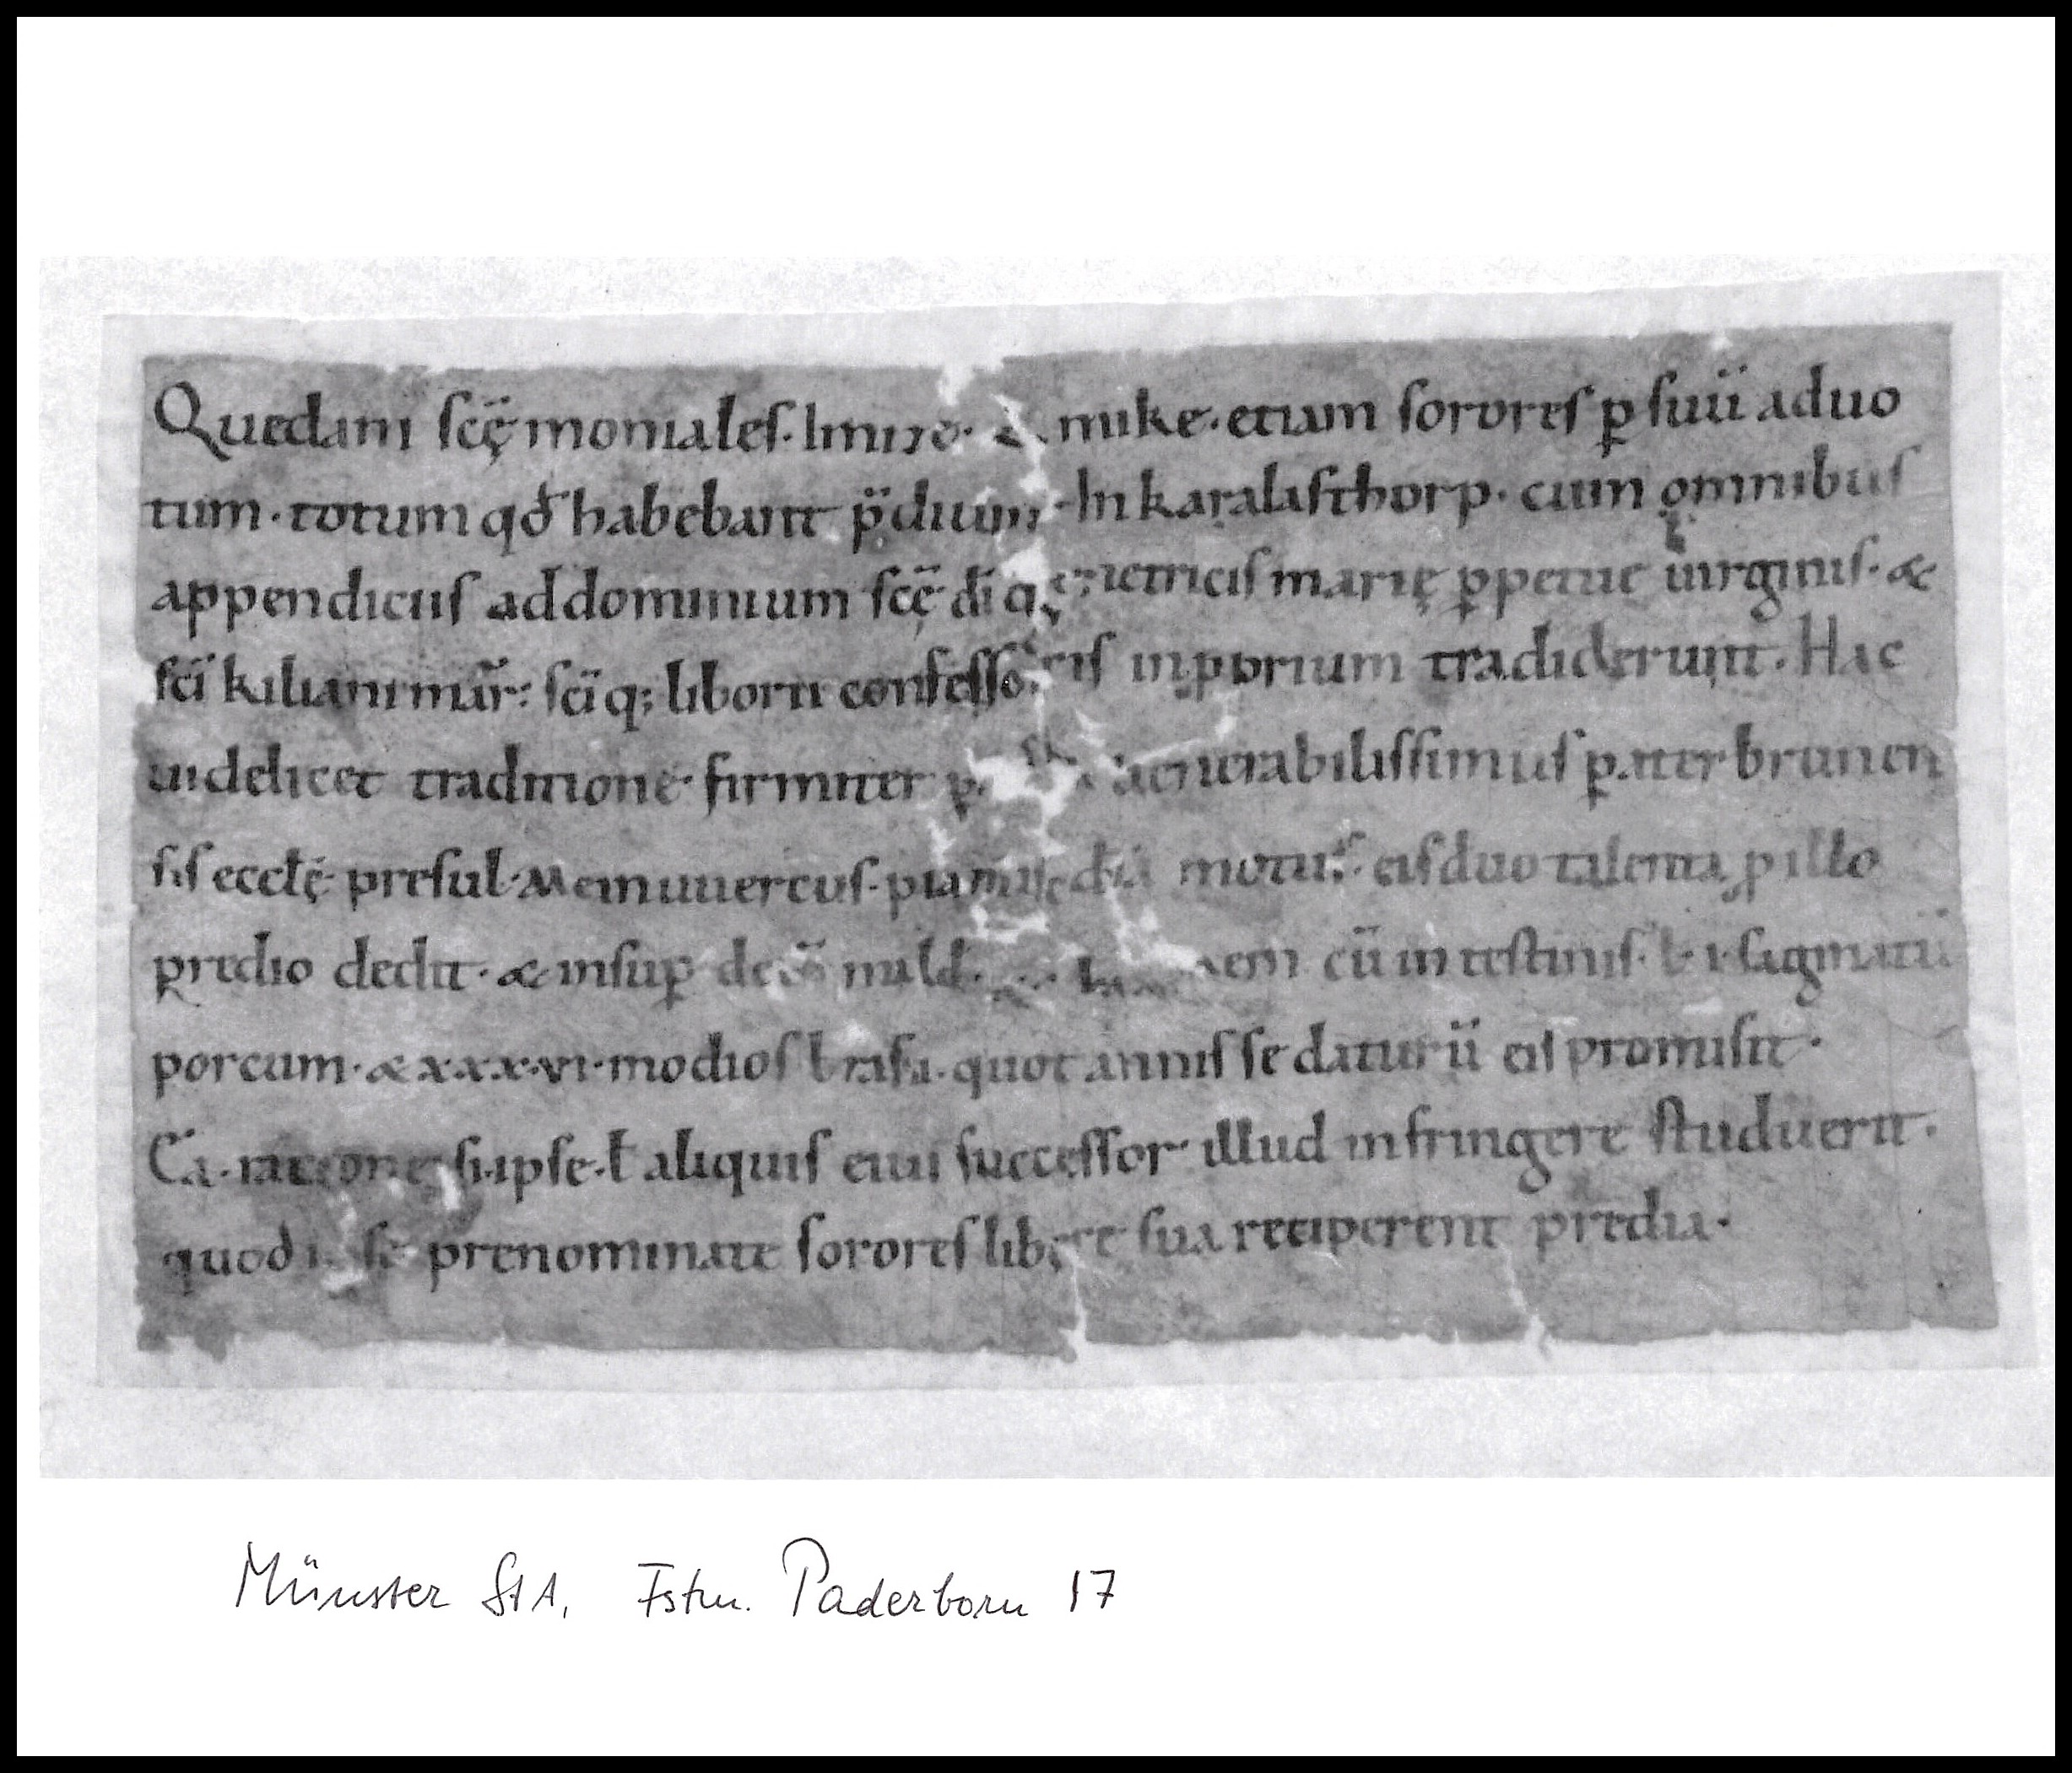 Quedam scę moniales. Imize. & nnike. etiam sorores p suū aduo
tum. totum qđ habebant p̈dium. In karalasthorp. cum omnibus
appendiciis ad dominium scę di genetricis marię ppetue uirginis. &
sci kiliani mar̄: sciq; liborii confessoris in pprium tradiderunt. Hac
uidelicet traditione firmiter uenerabilissimus pater brunen
sis eccłę presul Meinuuercus. eis duo talenta p illo
predio dedit. & insup cū in testinis. ł. i. saginatū
porcum. & xxx.vi. modios brasii. quot annis se daturū eis promisit.
Ea. racione si ipse. ł aliquis eius successor illud infringere studuerit.
quod prenominate sorores libere sua reciperent predia.
Münster StA, Fstm. Paderborn 17